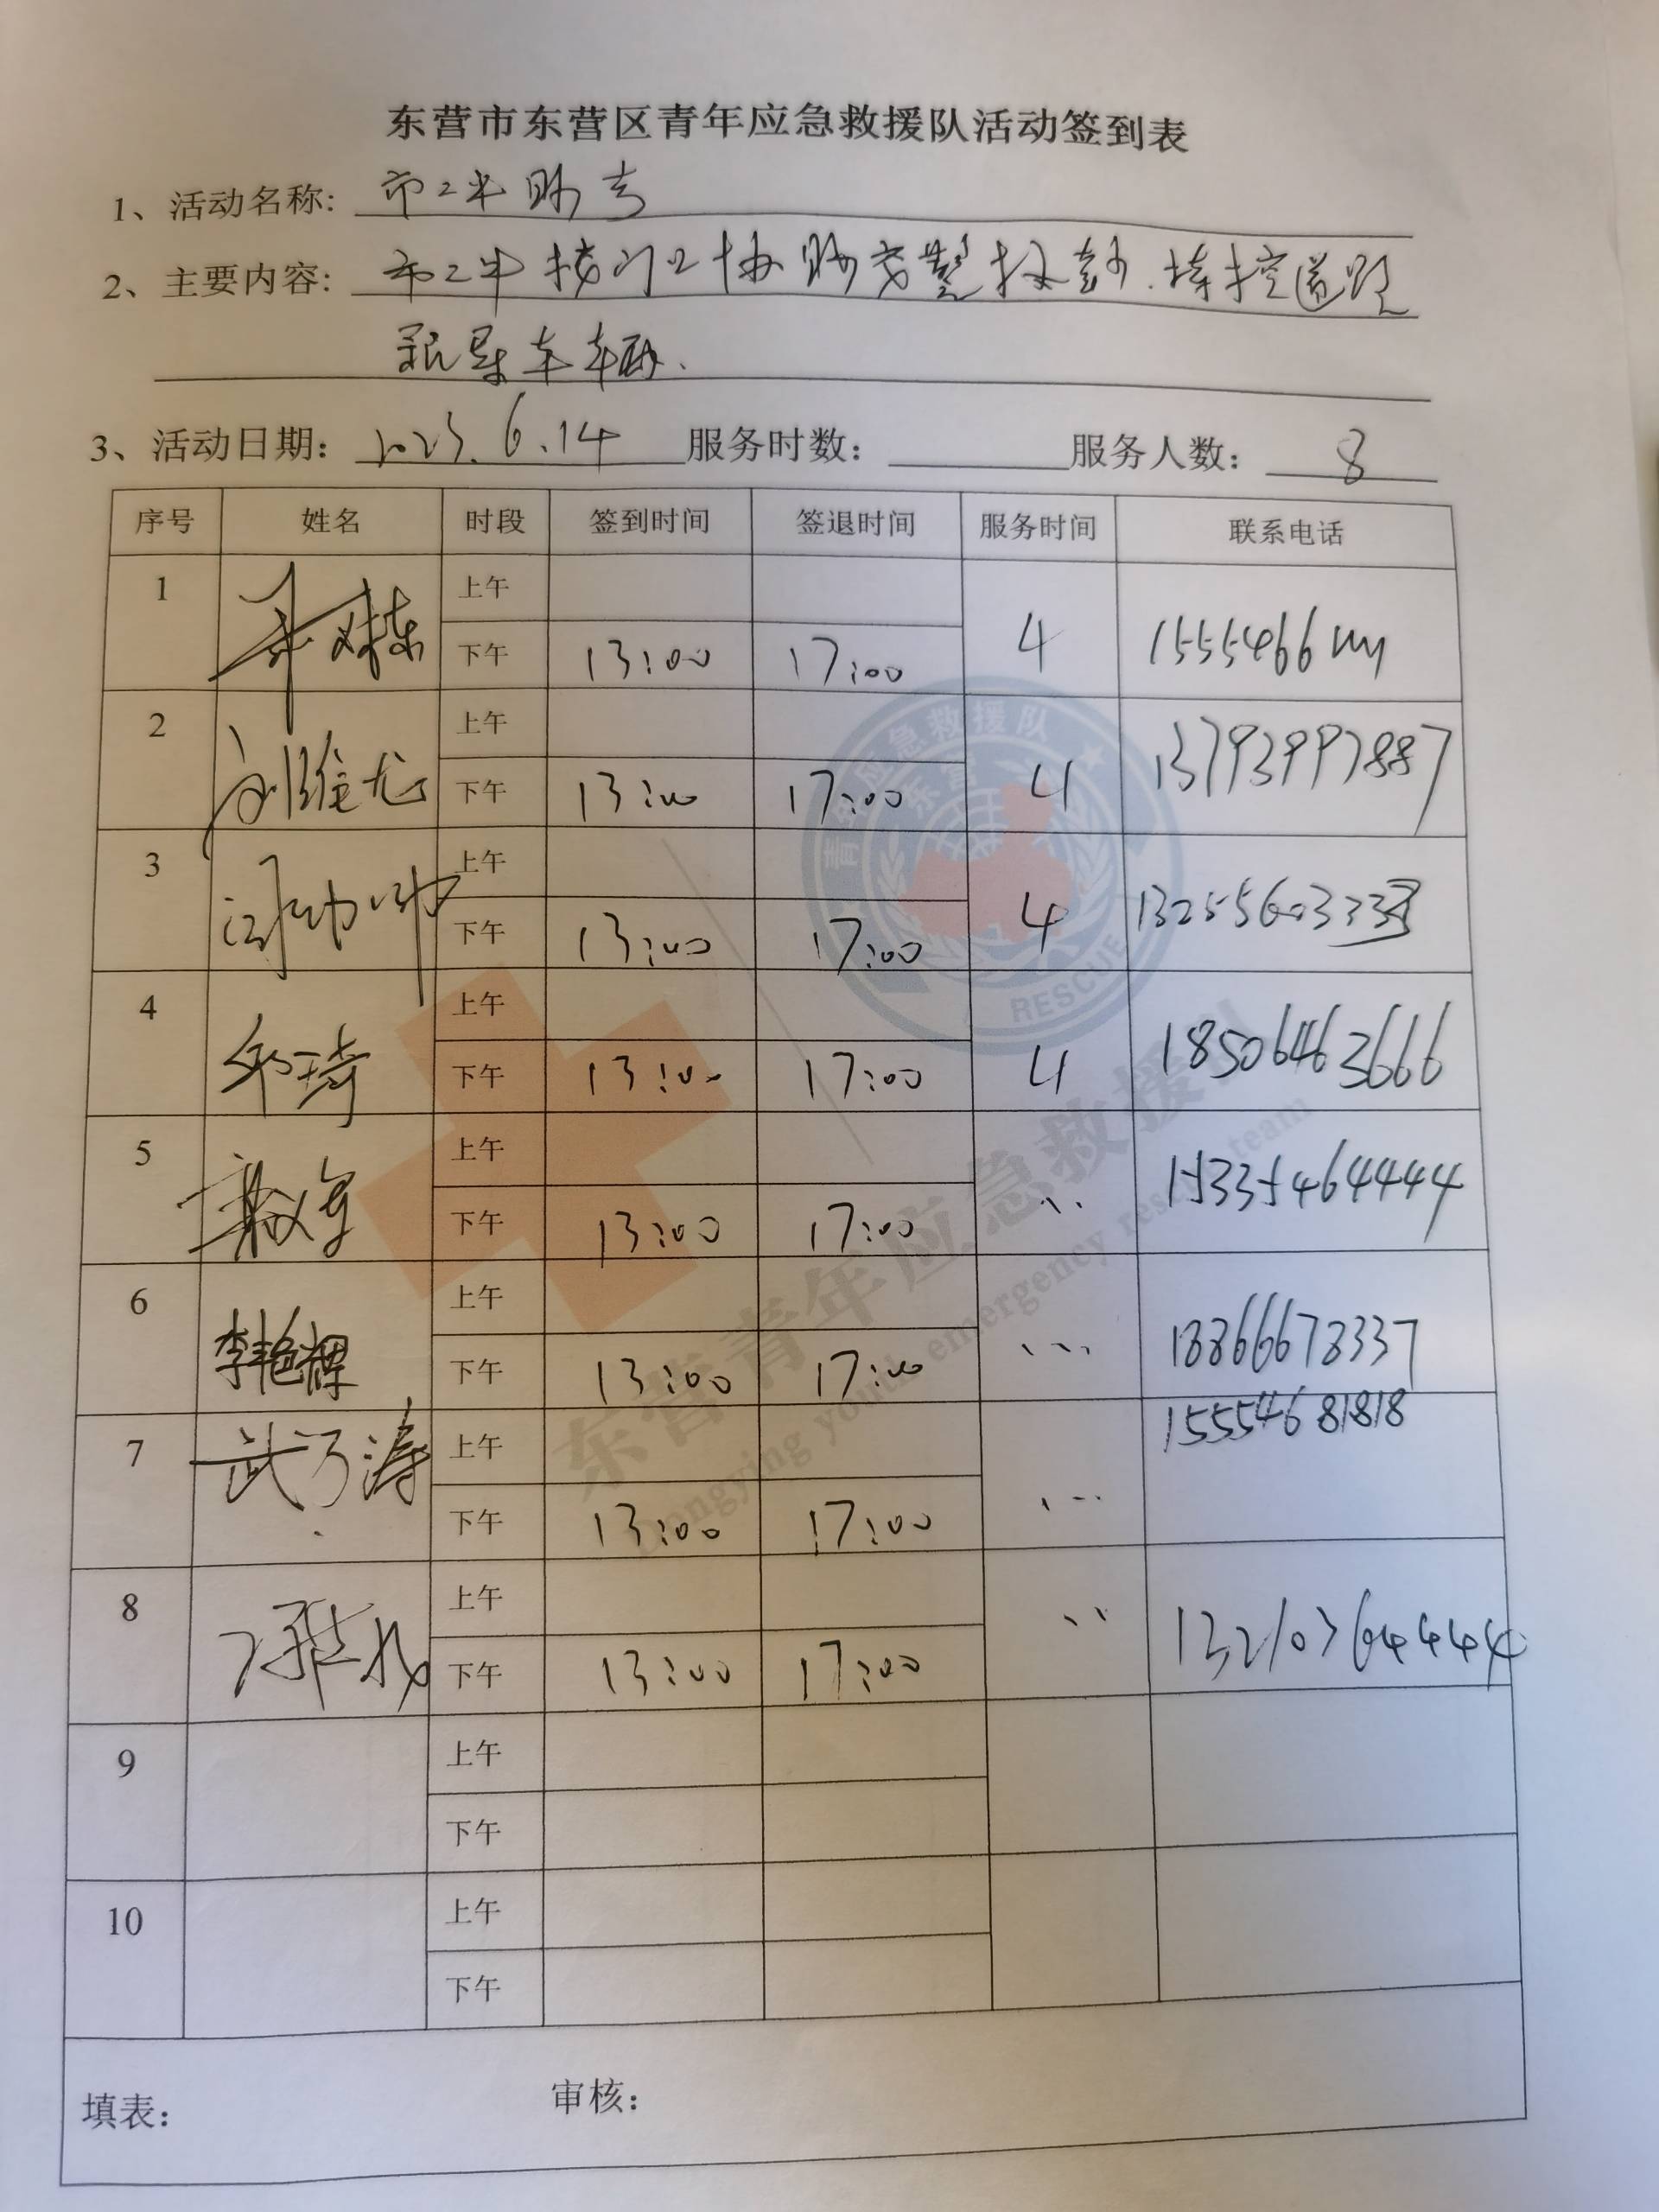 东营市东营区青年应急救援队活动签到表
1、活动名称:
2、主要内容:
3、活动日期: 2023.6.14 服务时数: 服务人数: 8
序号 姓名 时段 签到时间 签退时间 服务时间 联系电话
1 上午
下午 13:00 17:00 4 1555466
2 刘维尤 上午
下午 13:00 17:00 4 13793997887
3 上午
下午 13:00 17:00 4
4 邱琦 上午
下午 13:00 17:00 4 18506463666
5 上午
下午 13:00 17:00 15335464444
6 李艳辉 上午
下午 13:00 17:00 18866678337
7 武乃涛 上午 15554681818
下午 13:00 17:00
8 上午
下午 13:00 17:00 13210364444
9 上午
下午
10 上午
下午
填表: 审核:
青年应急救援队
RESCUE
东营青年应急救援队
Dongying youth emergency rescue team